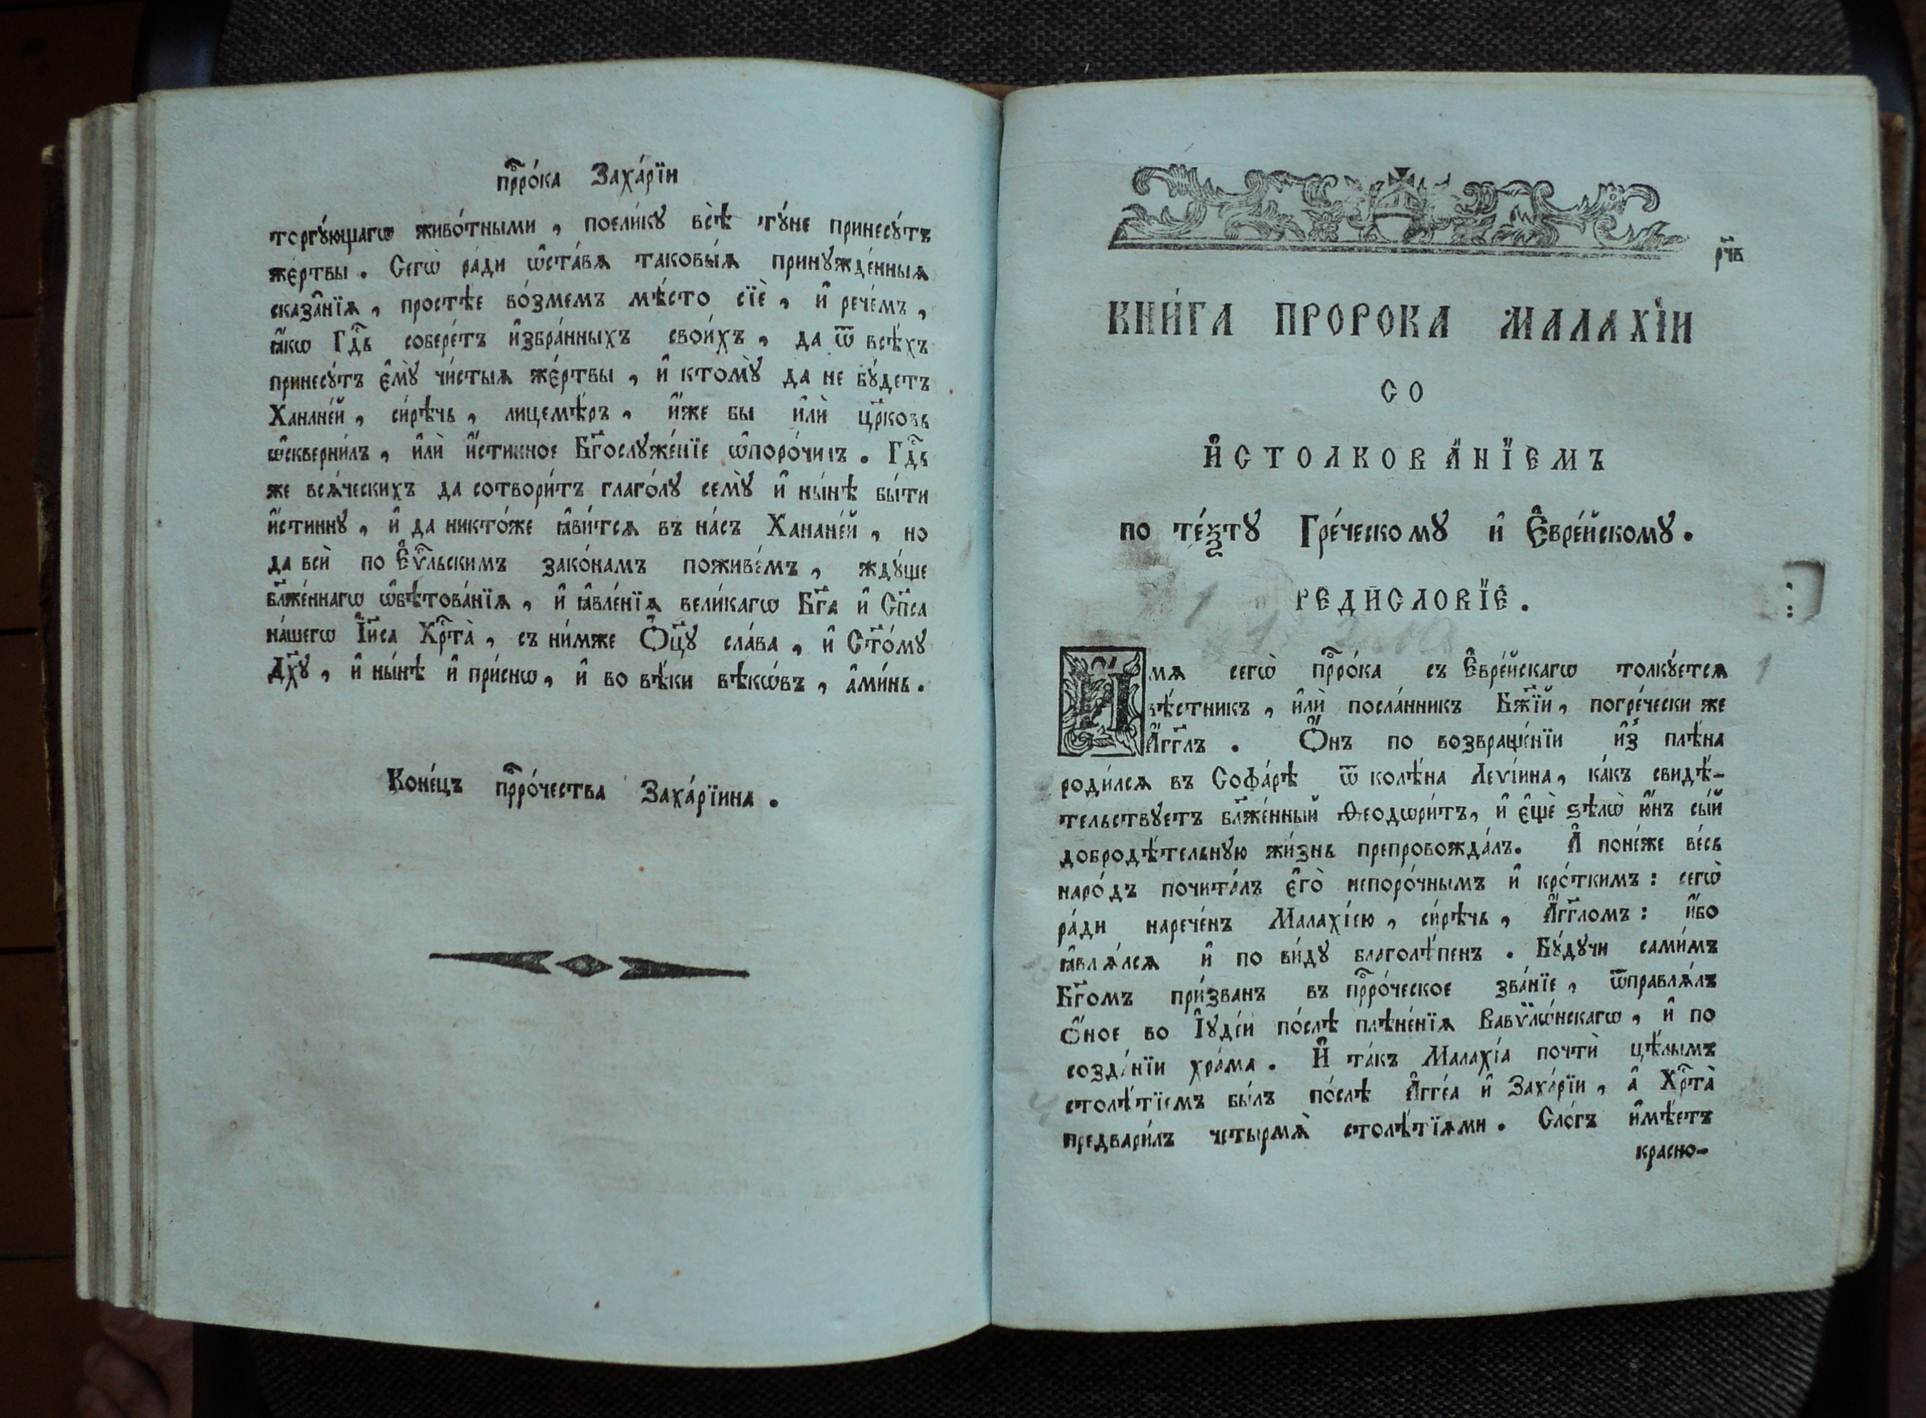 прⷪ҇ро́ка Заха́рїи
торгꙋ́ющагѡ живо́тными , поели́кꙋ всѝ тꙋ́не принесꙋ́тъ
же́ртвы . Сегѡ̀ ра́ди ѡ҆ста́вѧ таковы́ѧ принꙋжде́нныѧ
сказа̑нїѧ , просте́е во́змемъ мѣ́сто сїѐ , и҆ рече́мъ ,
ꙗ҆́кѡ Гдⷭ҇ь собере́тъ и҆збра́нныхъ свои́хъ , да ѿ всѣ́хъ
принесꙋ́тъ є҆мꙋ̀ чи́стыѧ же́ртвы , и҆ ктомꙋ̀ да не бꙋ́детъ
Ханане́й , си́рѣчь , лицемѣ́ръ , и҆́же бы и҆лѝ цр҃ковь
ѡ҆скверни́лъ , и҆лѝ и҆́стинное Бг҃ослꙋже́нїе ѡ҆поро́чилъ . Гдⷭ҇ь
же всѧ́ческихъ да сотвори́тъ глаго́лꙋ семꙋ̀ и҆ ны́нѣ бы́ти
и҆́стиннꙋ , и҆ да никто́же ꙗ҆ви́тсѧ въ на́съ Ханане́й , но
да всѝ по Є҆ѵⷢ҇льскимъ зако́намъ поживе́мъ , ждꙋ́ще
бл҃же́ннагѡ ѡ҆бѣтова́нїѧ , и҆ ꙗ҆вле́нїѧ вели́кагѡ Бг҃а и҆ Сп҃са
на́шегѡ І҆и҃са Хрⷭ҇та̀ , съ ни́мже Ѻ҆ц҃ꙋ сла́ва , и҆ Ст҃о́мꙋ
Дх҃ꙋ , и҆ ны́нѣ и҆ при́снѡ , и҆ во вѣ́ки вѣкѡ́въ , а҆ми́нь .
Коне́цъ прⷪ҇ро́чества Заха́рїина .
рч҃в
КНИ́ГА ПРОРОКА МАЛАХІ́И
СО
И҆СТОЛКОВА́НЇЕМЪ
по те́ѯтꙋ Гре́ческомꙋ и҆ Є҆вре́йскомꙋ .
РЕДИСЛОВЇЕ .
И҆мѧ сегѡ̀ прⷪ҇ро́ка съ Є҆вре́йскагѡ толкꙋ́етсѧ
вѣ́стникъ , и҆лѝ посла́нникъ Бж҃їй , погре́чески же
А҆́гг҃лъ . Ѻ҆́нъ по возвраще́нїи и҆з̾ плѣ́на
роди́лсѧ въ Софа́рѣ ѿ колѣ́на Леѵі́ина , ка́къ свидѣ́-
тельствꙋетъ бл҃же́нный Ѳеодѡри́тъ , и҆ є҆щѐ ѕѣлѡ̀ ю҆́нъ сы́й
добродѣ́тельнꙋю жи́знь препровожда́лъ . А҆ поне́же ве́сь
наро́дъ почита́лъ є҆го̀ непоро́чнымъ и҆ кро́ткимъ : сегѡ̀
ра́ди нарече́нъ Малахі́ею , си́рѣчь , А҆́гг҃ломъ : и҆́бо
ꙗ҆влѧ́лсѧ и҆ по ви́дꙋ благолѣ́пенъ . Бꙋ́дꙋчи сами́мъ
Бг҃омъ при́званъ въ прⷪ҇ро́ческое зва́нїе , ѿправлѧ́лъ
ѻ҆́ное во І҆ꙋде́и по́слѣ плѣне́нїѧ Вавѵлѡ́нскагѡ , и҆ по
созда́нїи хра́ма . И҆ та́къ Малахі́а почтѝ цѣ́лымъ
столѣ́тїемъ бы́лъ по́слѣ А҆гге́а и҆ Заха́рїи , а҆ Хрⷭ҇та̀
предвари́лъ четырмѧ̀ столѣ́тїѧми . Сло́гъ и҆мѣ́етъ
красно-